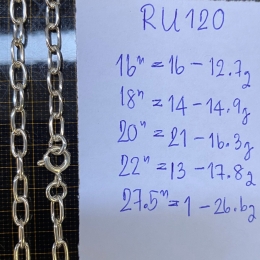 RU120
16" = 16 - 12.7g
18" = 14 - 14.9g
20" = 21 - 16.3g
22" = 13 - 17.8g
27.5" = 1 - 26.6g